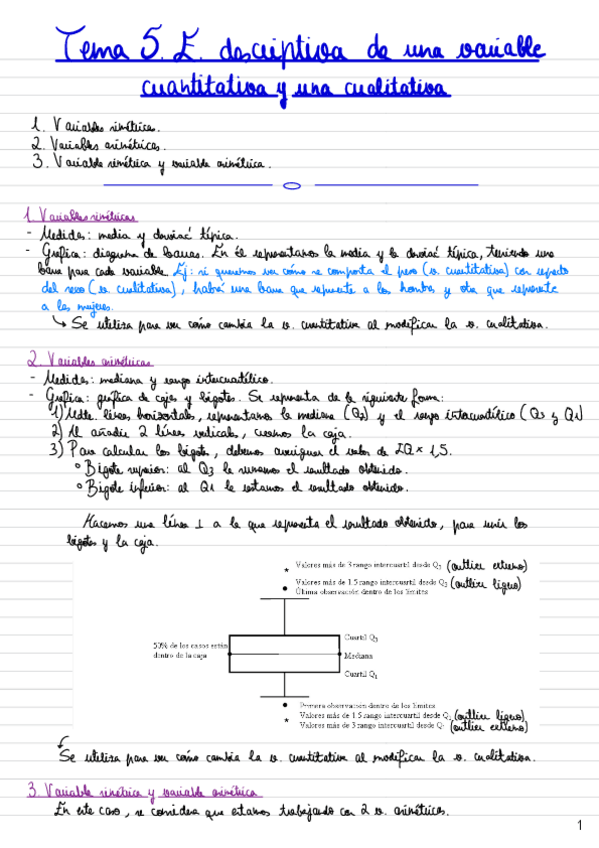 Tema 5. E. descriptiva de una variable
cuantitativa y una cualitativa
1. Variables simétricas.
2. Variables asimétricas.
3. Variable simétrica y variable asimétrica.
1. Variables simétricas
- Medidas: media y desviac típica.
- Gráfica: diagrama de barras. En él representamos la media y la desviac típica, teniendo una
barra para cada variable. Ej: si queremos ver cómo se comporta el peso (v. cuantitativa) con respecto
del sexo (v. cualitativa), habrá una barra que represente a los hombres y otra que represente
a las mujeres.
↳ Se utiliza para ver cómo cambia la v. cuantitativa al modificar la v. cualitativa.
2. Variables asimétricas
- Medidas: mediana y rango intercuartílico.
- Gráfica: gráfica de cajas y bigotes. Se representa de la siguiente forma:
1) Mdte. líneas horizontales, representamos la mediana (Q2) y el rango intercuartílico (Q3 y Q1)
2) Al añadir 2 líneas verticales, creamos la caja.
3) Para calcular los bigotes, debemos averiguar el valor de IQ × 1,5.
° Bigote superior: al Q3 le sumamos el resultado obtenido.
° Bigote inferior: al Q1 le restamos el resultado obtenido.
Hacemos una línea ⊥ a la que representa el resultado obtenido, para unir los
bigotes y la caja.
* Valores más de 3 rango intercuartil desde Q3 (outlier extremo)
• Valores más de 1.5 rango intercuartil desde Q3 (outlier ligero)
Última observación dentro de los límites
50% de los casos están
dentro de la caja
Cuartil Q3
Mediana
Cuartil Q1
Primera observación dentro de los límites
• Valores más de 1.5 rango intercuartil desde Q1 (outlier ligero)
* Valores más de 3 rango intercuartil desde Q1 (outlier extremo)
Se utiliza para ver cómo cambia la v. cuantitativa al modificar la v. cualitativa.
3. Variable simétrica y variable asimétrica
En este caso, se considera que estamos trabajando con 2 v. asimétricas.
1